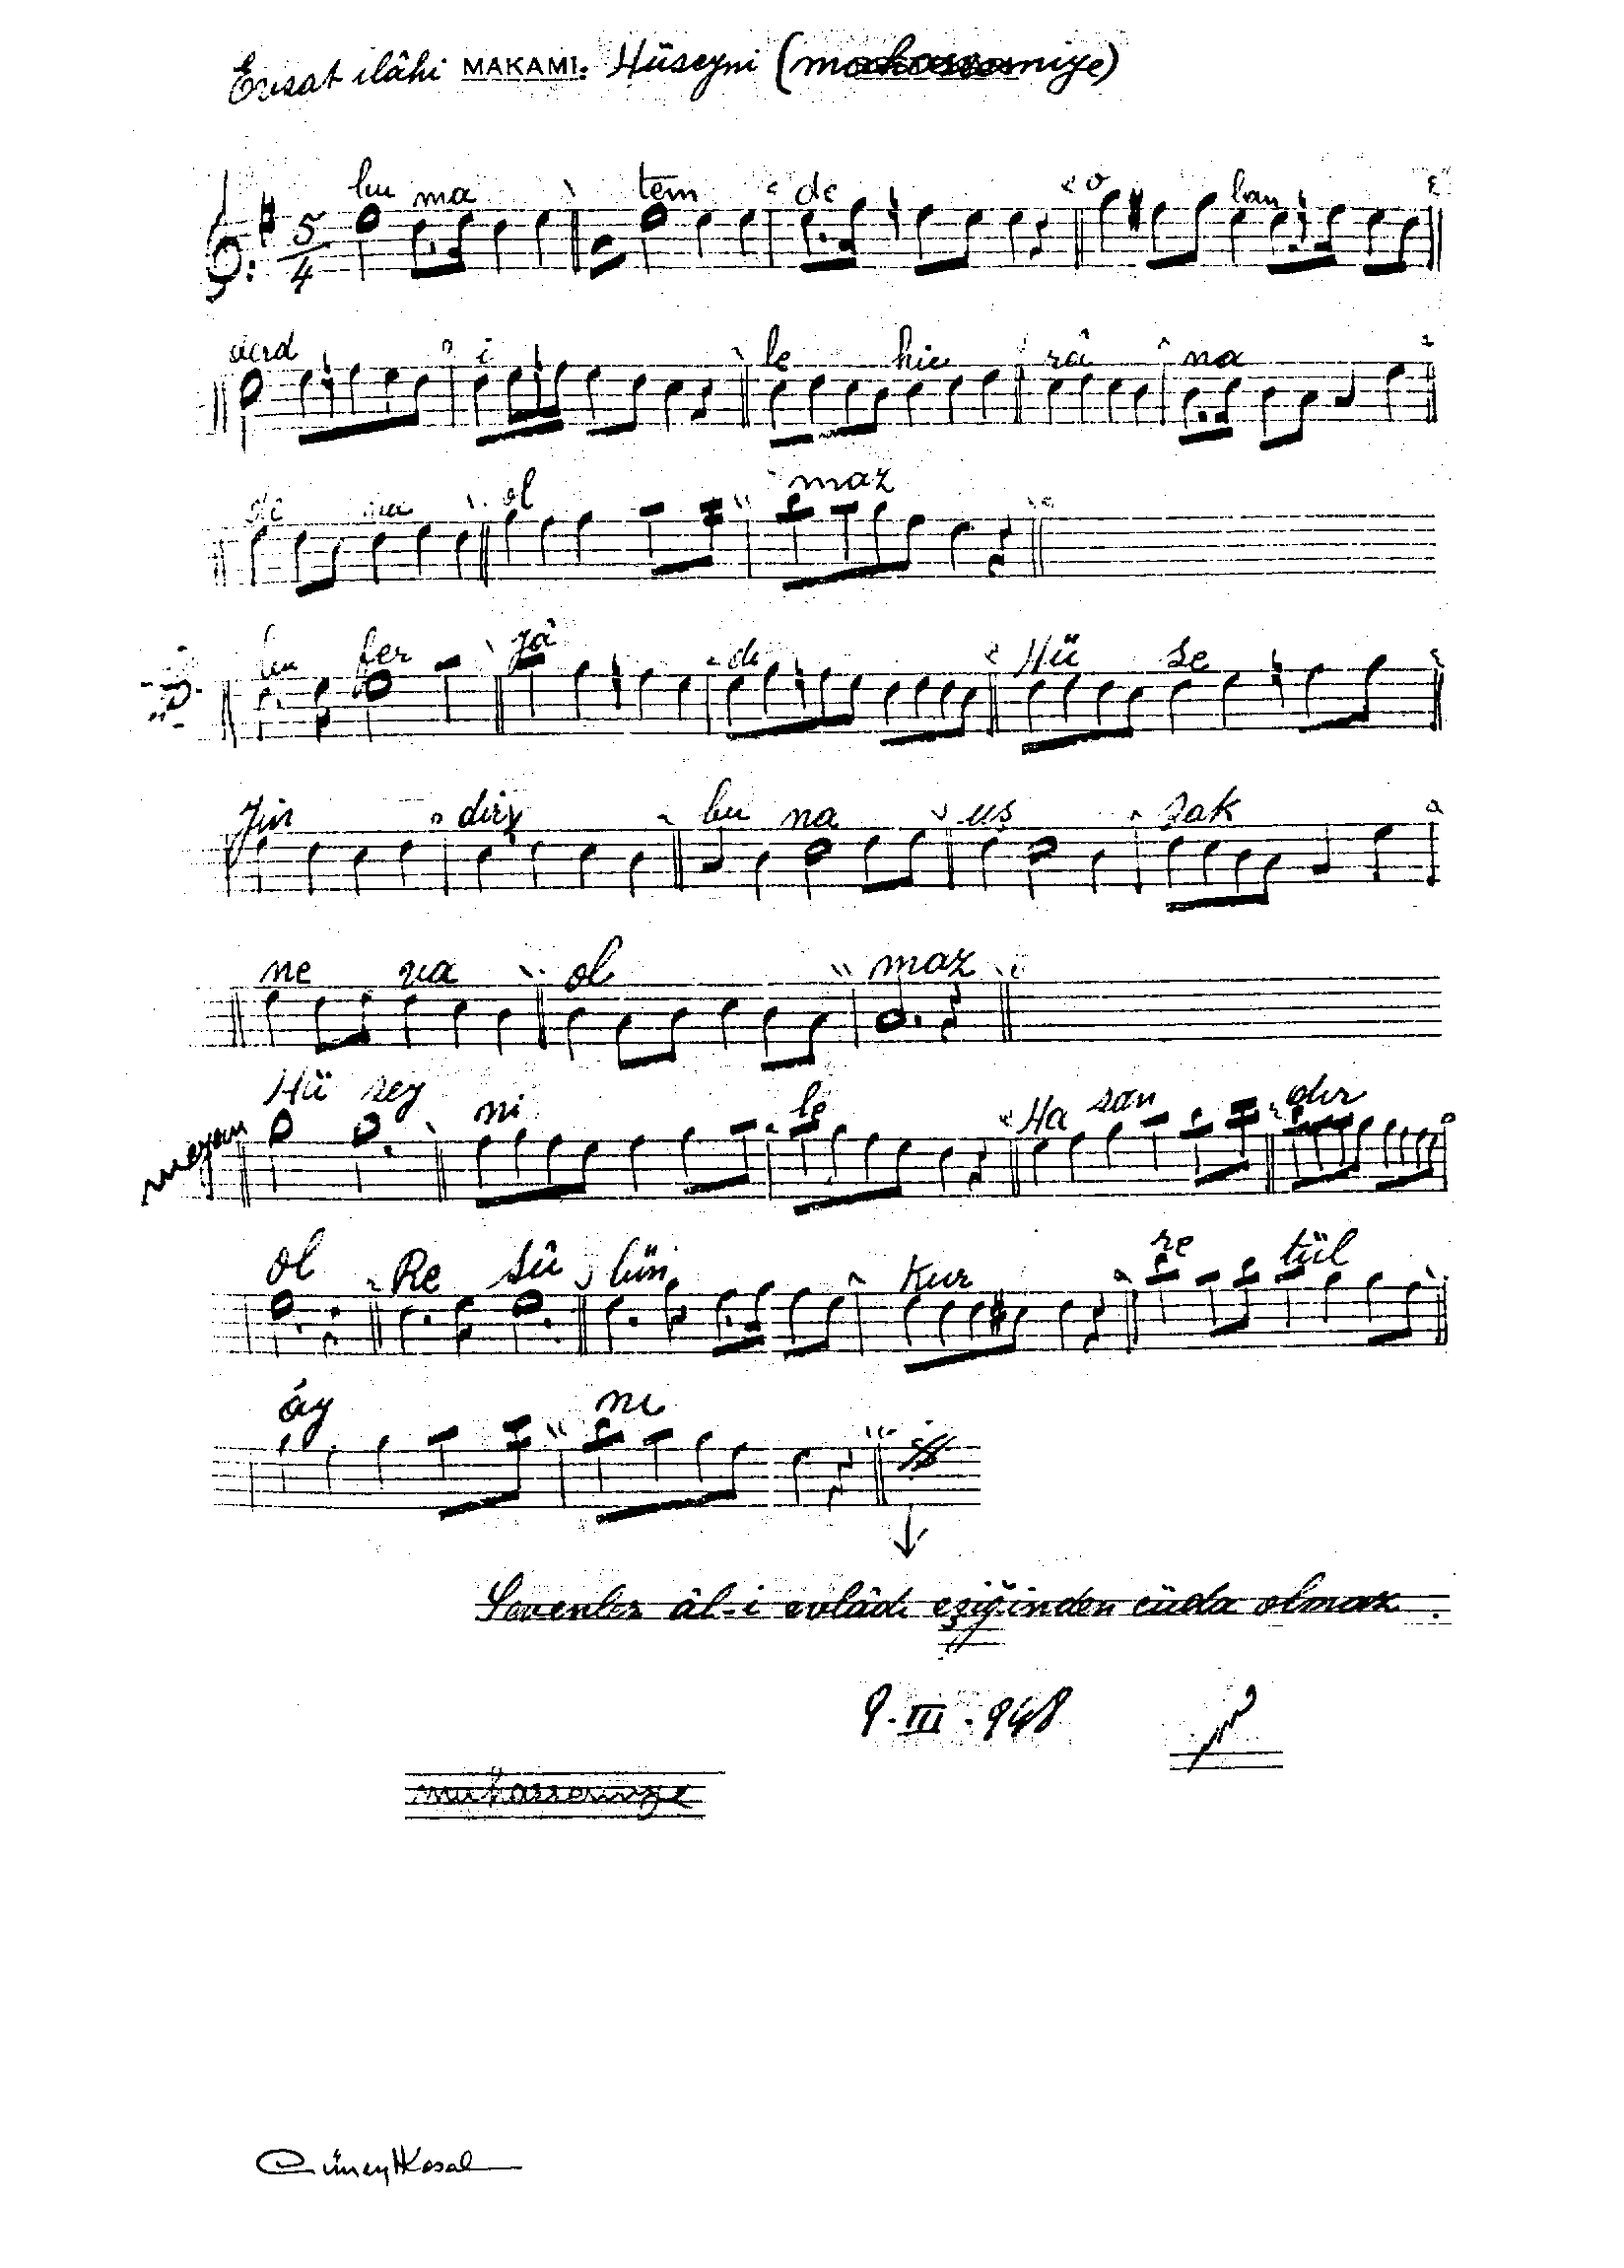 Evsat ilâhi MAKAMI: Hüseyni
5/4
bu ma tem de o lan
derd i le hic râ na
ol maz
bu fer yâ de Hü se
yin dir bu na uş şak
ne va ol maz
meyan Hü sey ni le Ha san dır
ol Re sû lün kur re tül
ay ni
Sevenler âl-i evlâdı eşiğinden cüda olmaz.
9.III.948
Cüneyt Kosal